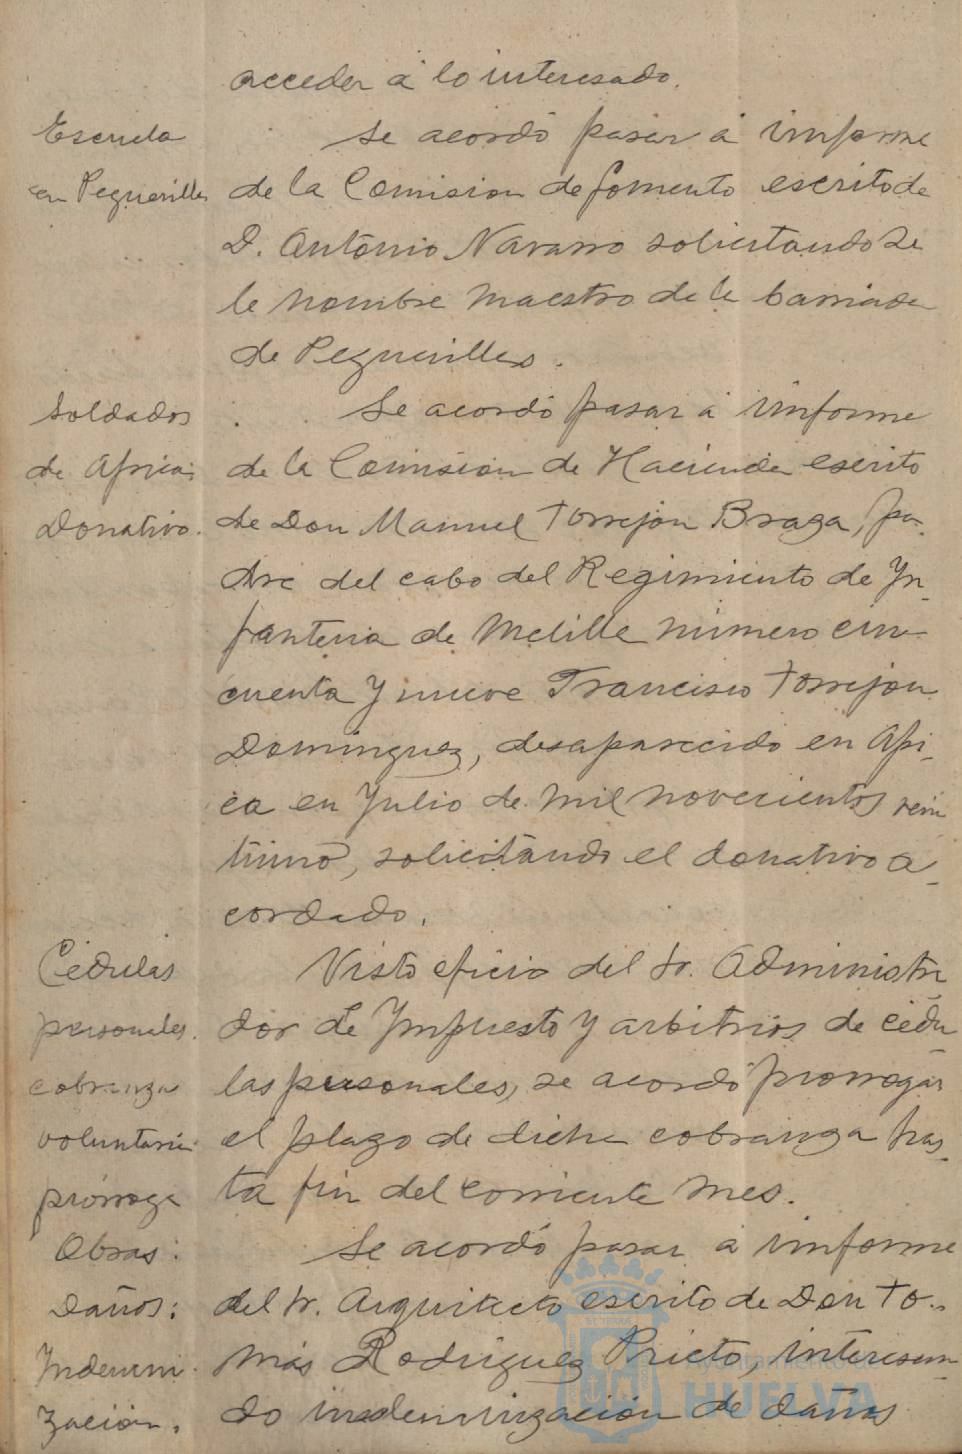 acceder á lo interesado.
Escuela
en Peguerillas
Se acordó pasar á informe
de la Comision de fomento escrito de
D. Antonio Navarro solicitando se
le nombre maestro de la barriada
de Peguerillas.
Soldados
de Africa.
Donativo.
Se acordó pasar á informe
de la Comision de Hacienda escrito
de Don Manuel Torrejon Braga, pa-
dre del cabo del Regimiento de Yn-
fanteria de Melilla número cin-
cuenta y nueve Francisco Torrejon
Dominguez, desaparecido en Afri-
ca en Julio de mil novecientos vein
tiuno, solicitando el donativo a-
cordado.
Cédulas
personales.
cobranza
voluntaria
prórroga
Visto oficio del Sr. Administra
dor de Ympuesto y arbitrios de cédu
las personales, se acordó prorrogar
el plazo de dicha cobranza has-
ta fin del corriente mes.
Obras:
Daños:
Yndemni-
zación.
Se acordó pasar á informe
del Sr. Arquitecto escrito de Don To-
más Rodríguez Prieto, interesan-
do indemnización de daños
Ayuntamiento de
HUELVA